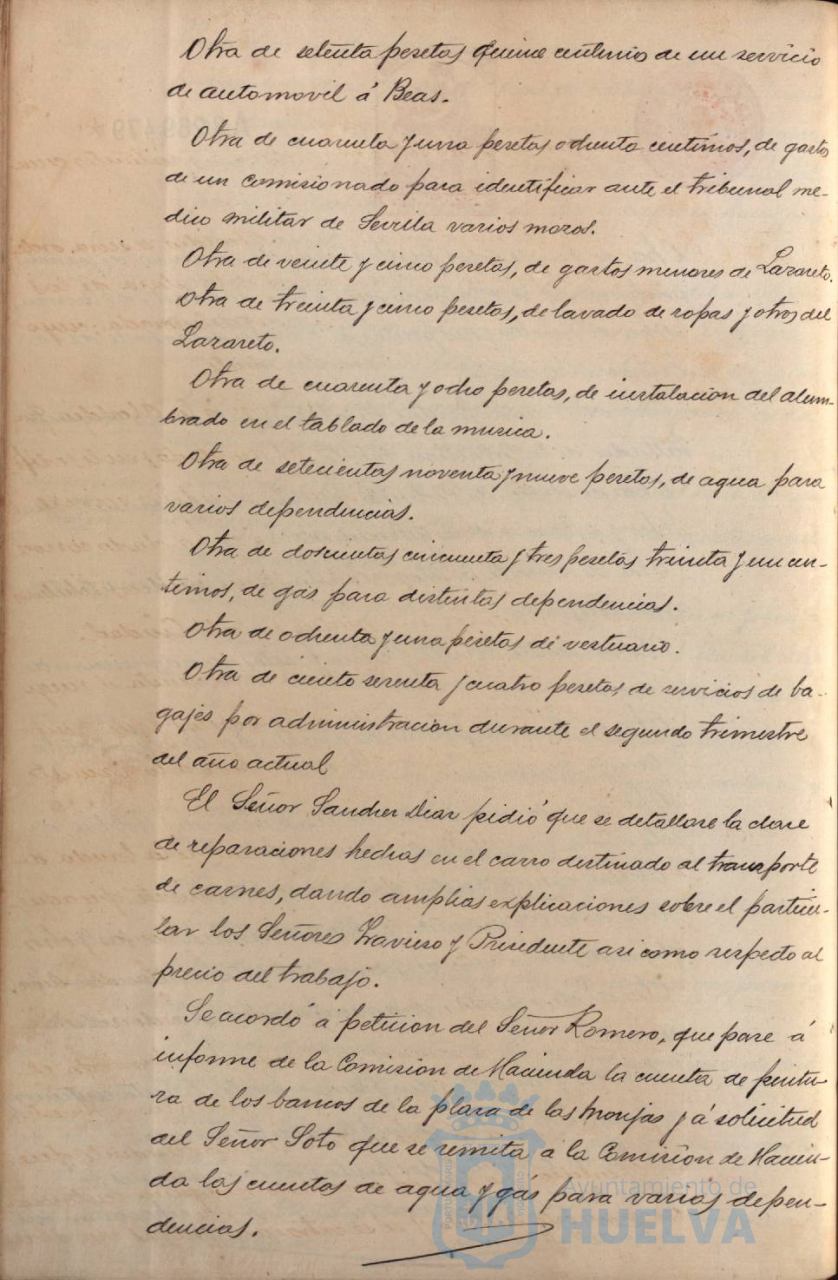 Otra de setenta pesetas quince centimos de un servicio
de automovil á Beas.
Otra de cuarenta y una pesetas ochenta centimos, de gastos
de un comisionado para identificar ante el tribunal me-
dico militar de Sevilla varios mozos.
Otra de veinte y cinco pesetas, de gastos menores de Lazareto.
Otra de treinta y cinco pesetas, de lavado de ropas y otros del
Lazareto.
Otra de cuarenta y ocho pesetas, de instalacion del alum-
brado en el tablado de la musica.
Otra de setecientas noventa y nueve pesetas, de agua para
varias dependencias.
Otra de doscientas cincuenta y tres pesetas treinta y un cen-
timos, de gas para distintas dependencias.
Otra de ochenta y una pesetas de vestuario.
Otra de ciento sesenta y cuatro pesetas de servicios de ba-
gajes por administracion durante el segundo trimestre
del año actual
El Señor Sanchez Diaz pidió que se detallase la clase
de reparaciones hechas en el carro destinado al transporte
de carnes, dando amplias explicaciones sobre el particu-
lar los Señores Travieso y Presidente asi como respecto al
precio del trabajo.
Se acordó á peticion del Señor Romero, que pase á
informe de la Comision de Hacienda la cuenta de pintu-
ra de los bancos de la plaza de las Monjas y á solicitud
del Señor Soto que se remita á la Comision de Hacien-
da las cuentas de agua y gas para varias depen-
dencias.
Ayuntamiento de
HUELVA